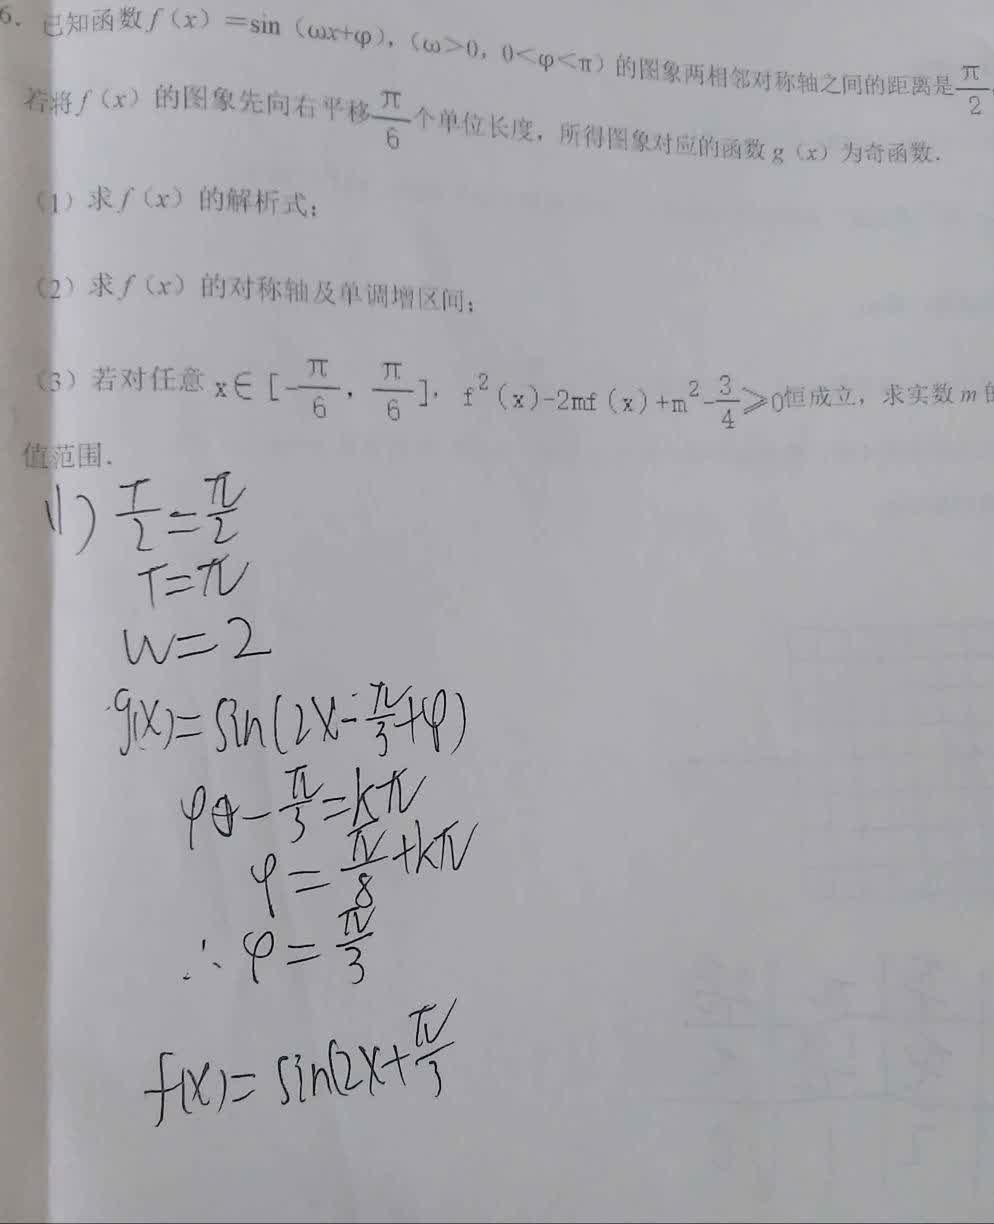 6. 已知函数f（x）=sin（ωx+φ），（ω>0，0<φ<π）的图象两相邻对称轴之间的距离是π/2
若将f（x）的图象先向右平移π/6个单位长度，所得图象对应的函数g（x）为奇函数.
（1）求f（x）的解析式；
（2）求f（x）的对称轴及单调增区间；
（3）若对任意x∈[-π/6，π/6]，f²（x）-2mf（x）+m²-3/4≥0恒成立，求实数m的
值范围.
(1) T/2=π/2
T=π
w=2
g(x)=sin(2x-π/3+φ)
φ-π/3=kπ
φ=π/8+kπ
∴φ=π/3
f(x)=sin(2x+π/3